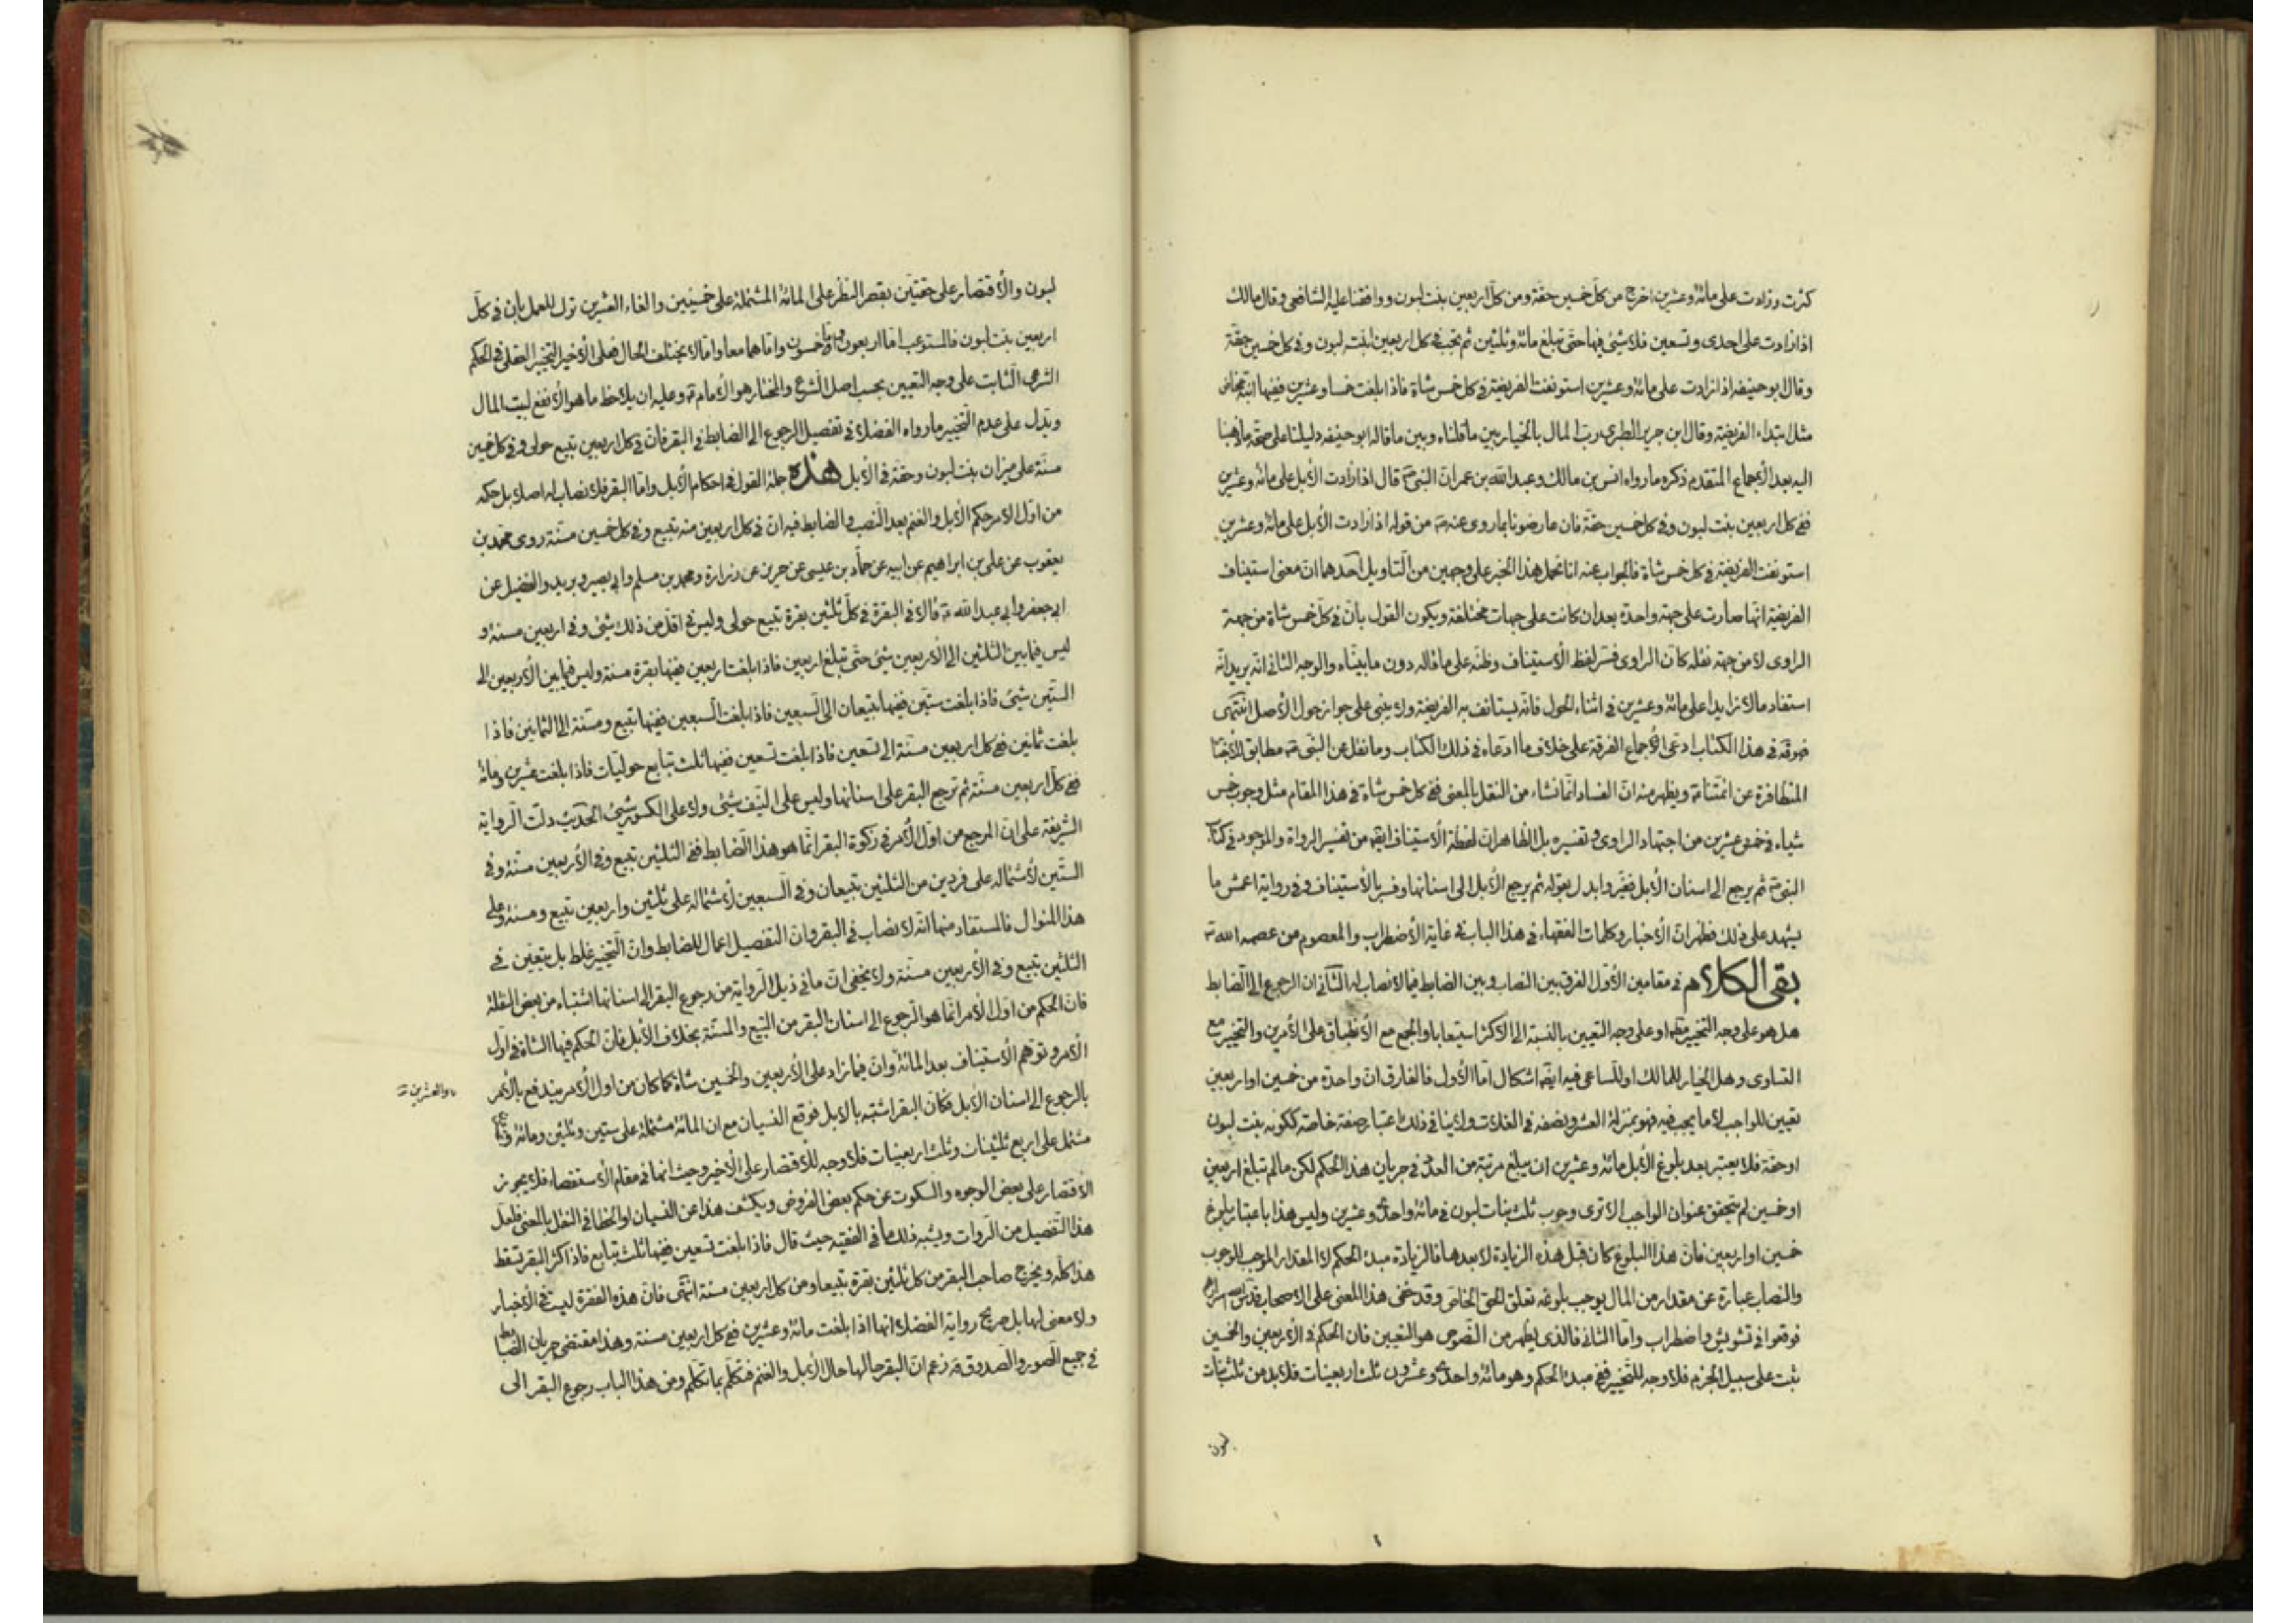 كثرت وزادت على مائة وعشرين اخرج من كل خمسين حقة ومن كل اربعين بنت لبون ووافقنا عليه الشافعي وقال مالك
اذا زادت على احدى وتسعين فلا شئ فيها حتى تبلغ مائة وثلثين ثم تجب في كل اربعين ابنت لبون وفي كل خمسين حقة
وقال ابو حنيفه اذا زادت على مائة وعشرين استونفت الفريضة في كل خمس شاة فاذا بلغت خمسا وعشرين ففيها ابنة مخاض
مثل ابتداء الفريضة وقال ابن جرير الطبري رب المال بالخيار بين ما قلناه وبين ما قاله ابو حنيفه دليلنا على صحة ما ذهبنا
اليه بعد الأجماع المتقدم ذكره ما رواه انس بن مالك وعبد الله بن عمر ان النبي ص قال اذا زادت الأبل على مائة وعشرين
ففي كل اربعين بنت لبون وفي كل خمسين حقة فان عارضونا بما روي عنه ص من قوله اذا زادت الأبل على مائة وعشرين
استونفت الفريضة في كل خمس شاة فالجواب عنه انا نحمل هذا الخبر على وجهين من التاويل احدهما ان معنى استيناف
الفريضة انها صارت على جهة واحدة بعد ان كانت على جهات مختلفة ويكون القول بان في كل خمس شاة من جهة
الراوى لا من جهة نقله كان الراوى فسر لفظ الأستيناف وظنه على ما قاله دون ما بيناه والوجه الثاني انه يريد انه
استفاد مالا زايدا على مائة وعشرين في اثناء الحول فانه يستانف به الفريضة ولا يبنى على جواز حول الأصل انتهى
في هذا الكتاب ادعى الأجماع الفرقة على خلاف ما ادعاه في ذلك الكتاب وما نقل عن النبي ص مطابق للأخبا
المتظافرة عن ائمتنا ع ويظهر منه ان الفساد انما نشاء من النقل بالمعنى ففي كل خمس شاة في هذا المقام مثل وجوب خمس
شياه في خمس وعشرين من اجتهاد الراوى وتفسيره بل الظاهر ان لفظة الأستيناف ايضا من تفسير الرواة والموجود في كتاب
النبي ص ثم يرجع الى اسنان الأبل فغير وابدل بقوله ثم يرجع الأبل الى اسنانها وفسر بالأستيناف وفي رواية اعمش ما
يشهد على ذلك فظهر ان الأخبار وكلمات الفقهاء في هذا الباب في غاية الأضطراب والمعصوم من عصمه الله تع
بقى الكلام في مقامين الأول الفرق بين النصاب وبين الضابط فيما لا نصاب له الثاني ان الرجوع الى الضابط
هل هو على وجه التخيير مطلقا او على وجه التعيين بالنسبة الى الاكثر استيعابا والجمع مع الأنطباق على الأمرين والتخيير مع
التساوى وهل الخيار للمالك او للساعى فيه ايضا اشكال اما الأول فالفارق ان واحدة من خمسين او اربعين
تعيين للواجب لا ما يجب فيه فهو بمنزلة العشر ونصفه في الغلات ولا ينافي ذلك اعتبار صفة خاصة ككونه بنت لبون
او حقة فلا يعتبر بعد بلوغ الأبل مائة وعشرين ان يبلغ مرتبة من العدد في جريان هذا الحكم لكن مالم تبلغ اربعين
او خمسين لم يتحقق عنوان الواجب الا ترى وجوب ثلث بنات لبون في مائة واحدى وعشرين وليس هذا باعتبار بلوغ
خمسين او اربعين فان هذا البلوغ كان قبل هذه الزيادة لا بعدها فالزيادة مبدء الحكم لا المقدار الموجب للوجوب
والنصاب عبارة عن مقدار من المال يوجب بلوغه تعلق الحق الخاص وقد خفى هذا المعنى على الاصحاب قدس الله اسرارهم
فوقعوا في تشويش واضطراب واما الثاني فالذى يظهر من النصوص هو التعيين فان الحكم في الأربعين والخمسين
ثبت على سبيل الجزم فلا وجه للتخيير ففي مبدء الحكم وهو مائة واحدى وعشرون ثلث اربعينات فلا بد من ثلث بنات
لبون
لبون والأقتصار على حقتين بقصر النظر على المائة المشتملة على خمسين والغاء العشرين ترك للعمل بان في كل
اربعين بنت لبون فالمستوعب اما اربعون واما خمسون واما هما معا واما لا يختلف الحال فعلى الأخير التخيير العقلى في الحكم
الشرعى الثابت على وجه التعيين بحسب اصل الشرع والمختار هو الأمام ع وعليه ان يلاحظ ما هو الأنفع لبيت المال
ويدل على عدم التخيير ما رواه الفضلاء في تفصيل الرجوع الى الضابط في البقر فان في كل اربعين تبيع حولى وفي كل خمسين
مسنة على ميزان بنت لبون وحقة في الأبل هذه جملة القول في احكام الأبل واما البقر فلا نصاب له اصلا بل حكمه
من اول الامر حكم الأبل والغنم بعد النصب والضابط فيه ان في كل اربعين منه تبيع وفي كل خمسين مسنة روى محمد بن
يعقوب عن على بن ابراهيم عن ابيه عن حماد بن عيسى عن حريز عن زرارة ومحمد بن مسلم وابي بصير وبريد والفضيل عن
ابي جعفر وابي عبد الله ع قالا في البقرة في كل ثلثين بقرة تبيع حولى وليس في اقل من ذلك شئ وفي اربعين مسنة و
ليس فيما بين الثلثين الى الأربعين شئ حتى تبلغ اربعين فاذا بلغت اربعين ففيها بقرة مسنة وليس فيما بين الأربعين الى
الستين شئ فاذا بلغت ستين ففيها تبيعان الى السبعين فاذا بلغت السبعين ففيها تبيع ومسنة الى الثمانين فاذا
بلغت ثمانين ففي كل اربعين مسنة الى تسعين فاذا بلغت تسعين ففيها ثلث تبايع حوليات فاذا بلغت عشرين ومائة
ففي كل اربعين مسنة ثم ترجع البقر على اسنانها وليس على النيف شئ ولا على الكسور شئ الحديث دلت الرواية
الشريفة على ان المرجع من اول الأمر في زكوة البقر انما هو هذا الضابط ففي الثلثين تبيع وفي الأربعين مسنة وفي
الستين لأشتماله على فردين من الثلثين تبيعان وفي السبعين لأشتماله على ثلثين واربعين تبيع ومسنة وعلى
هذا المنوال فالمستفاد منها انه لا نصاب في البقر وان التفصيل اعمال للضابط وان التخيير غلط بل يتعين في
الثلثين تبيع وفي الأربعين مسنة ولا يخفى ان ما في ذيل الرواية من رجوع البقر الى اسنانها اشتباه من بعض النقلة
فان الحكم من اول الأمر انما هو الرجوع الى اسنان البقر من التبيع والمسنة بخلاف الأبل فان الحكم فيها الشاة في اول
الأمر وتوهم الأستيناف بعد المائة وان فيما زاد على الأربعين والخمسين شاة كما كان من اول الأمر يندفع بالأمر
والعشرين
بالرجوع الى اسنان الابل فكان البقر اشتبه بالابل فوقع النسيان مع ان المائة مشتملة على ستين وثلثين ومائة
مشتمل على اربع ثلثينات وثلث اربعينات فلا وجه للأقتصار على الأخير وحيث انها في مقام الأستقصاء فلا يجوز
الأقتصار على بعض الوجوه والسكوت عن حكم بعض الفروض ويكشف هذا عن النسيان او الخطا في النقل بالمعنى فلعل
هذا التفصيل من الروات ويشبه ذلك ما في الفقيه حيث قال فاذا بلغت تسعين ففيها ثلث تبايع فاذا كثر البقر تسقط
هذا كله ويخرج صاحب البقر من كل ثلثين بقرة تبيعا ومن كل اربعين مسنة انتهى فان هذه الفقرة ليست في الأخبار
ولا معنى لها بل صريح رواية الفضلاء انها اذا بلغت مائة وعشرين ففي كل اربعين مسنة وهذا مقتضى جريان الضابط
في جميع الصور والصدوق زعم ان البقر حالها حال الأبل والغنم فتكلم بما تكلم ومن هذا الباب رجوع البقر الى